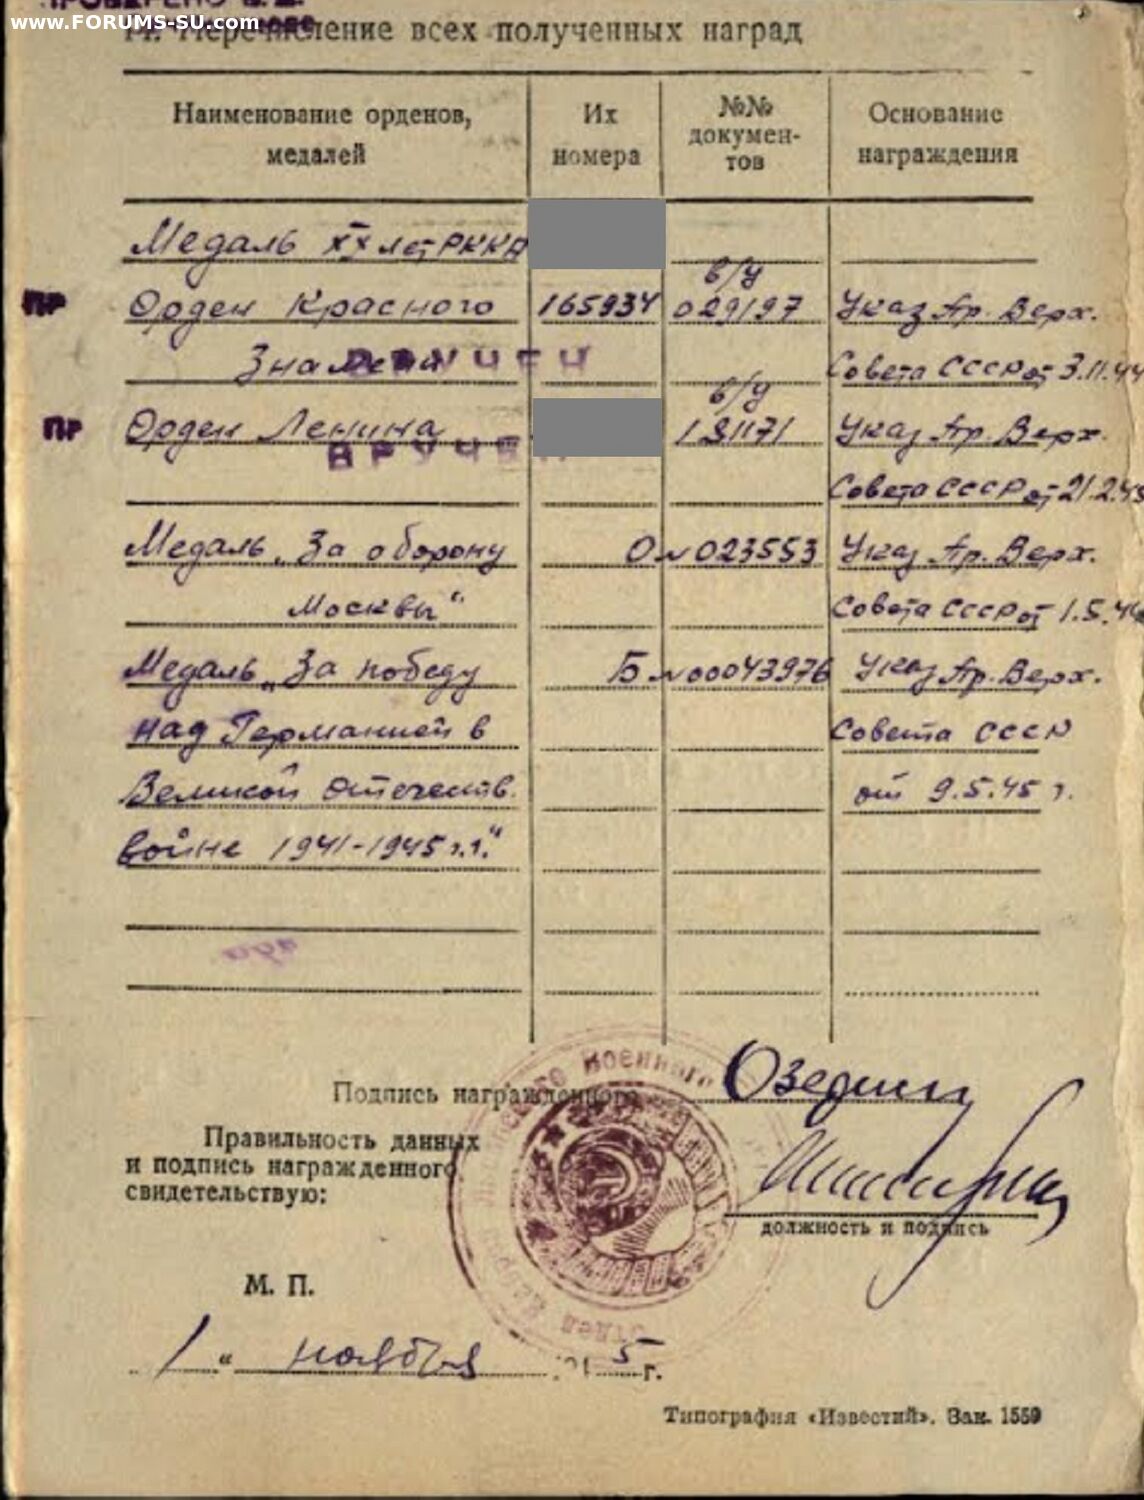 ПРОВЕРЕНО
www.FORUMS-SU.com
14. Перечисление всех полученных наград
Наименование орденов, медалей
Их номера
№№ докумен-тов
Основание награждения
Медаль XX лет РККА
ПР Орден Красного 165934 в/у 029197 Указ Пр. Верх.
Знамени ВРУЧЕН Совета СССР от 3.11.44
ПР Орден Ленина в/у 181171 Указ Пр. Верх.
ВРУЧЕН
Совета СССР от 21.2.45
Медаль „За оборону О № 023553 Указ Пр. Верх.
Москвы“ Совета СССР от 1.5.44
Медаль „За победу Б № 00043976 Указ Пр. Верх.
над Германией в Совета СССР
Великой Отечеств. от 9.5.45 г.
войне 1941-1945 г.г.“
Подпись награжденного
Правильность данных
и подпись награжденного
свидетельствую:
должность и подпись
М. П.
1 “ ноября 5 г.
Типография «Известий». Зак. 1559